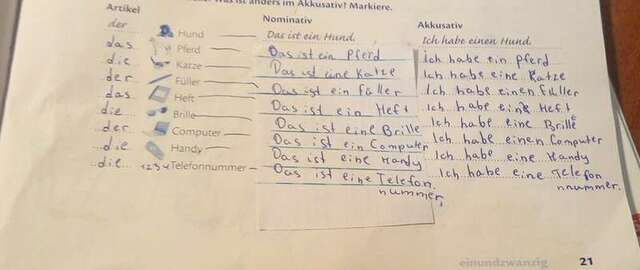 was ist anders im Akkusativ? Markiere.
Artikel Nominativ Akkusativ
der Hund Das ist ein Hund. Ich habe einen Hund.
das Pferd Das ist ein Pferd Ich habe ein Pferd
die Katze Das ist eine Katze Ich habe eine Katze
der Füller Das ist ein füller Ich habe einen füller
das Heft Das ist ein Heft Ich habe eine Heft
die Brille Das ist eine Brille Ich habe eine Brille
der Computer Das ist ein Computer Ich habe einen Computer
die Handy Das ist eine Handy Ich habe eine Handy
die 1234 Telefonnummer Das ist eine Telefon Ich habe eine Telefon
nummer. nnummer.
einundzwanzig 21